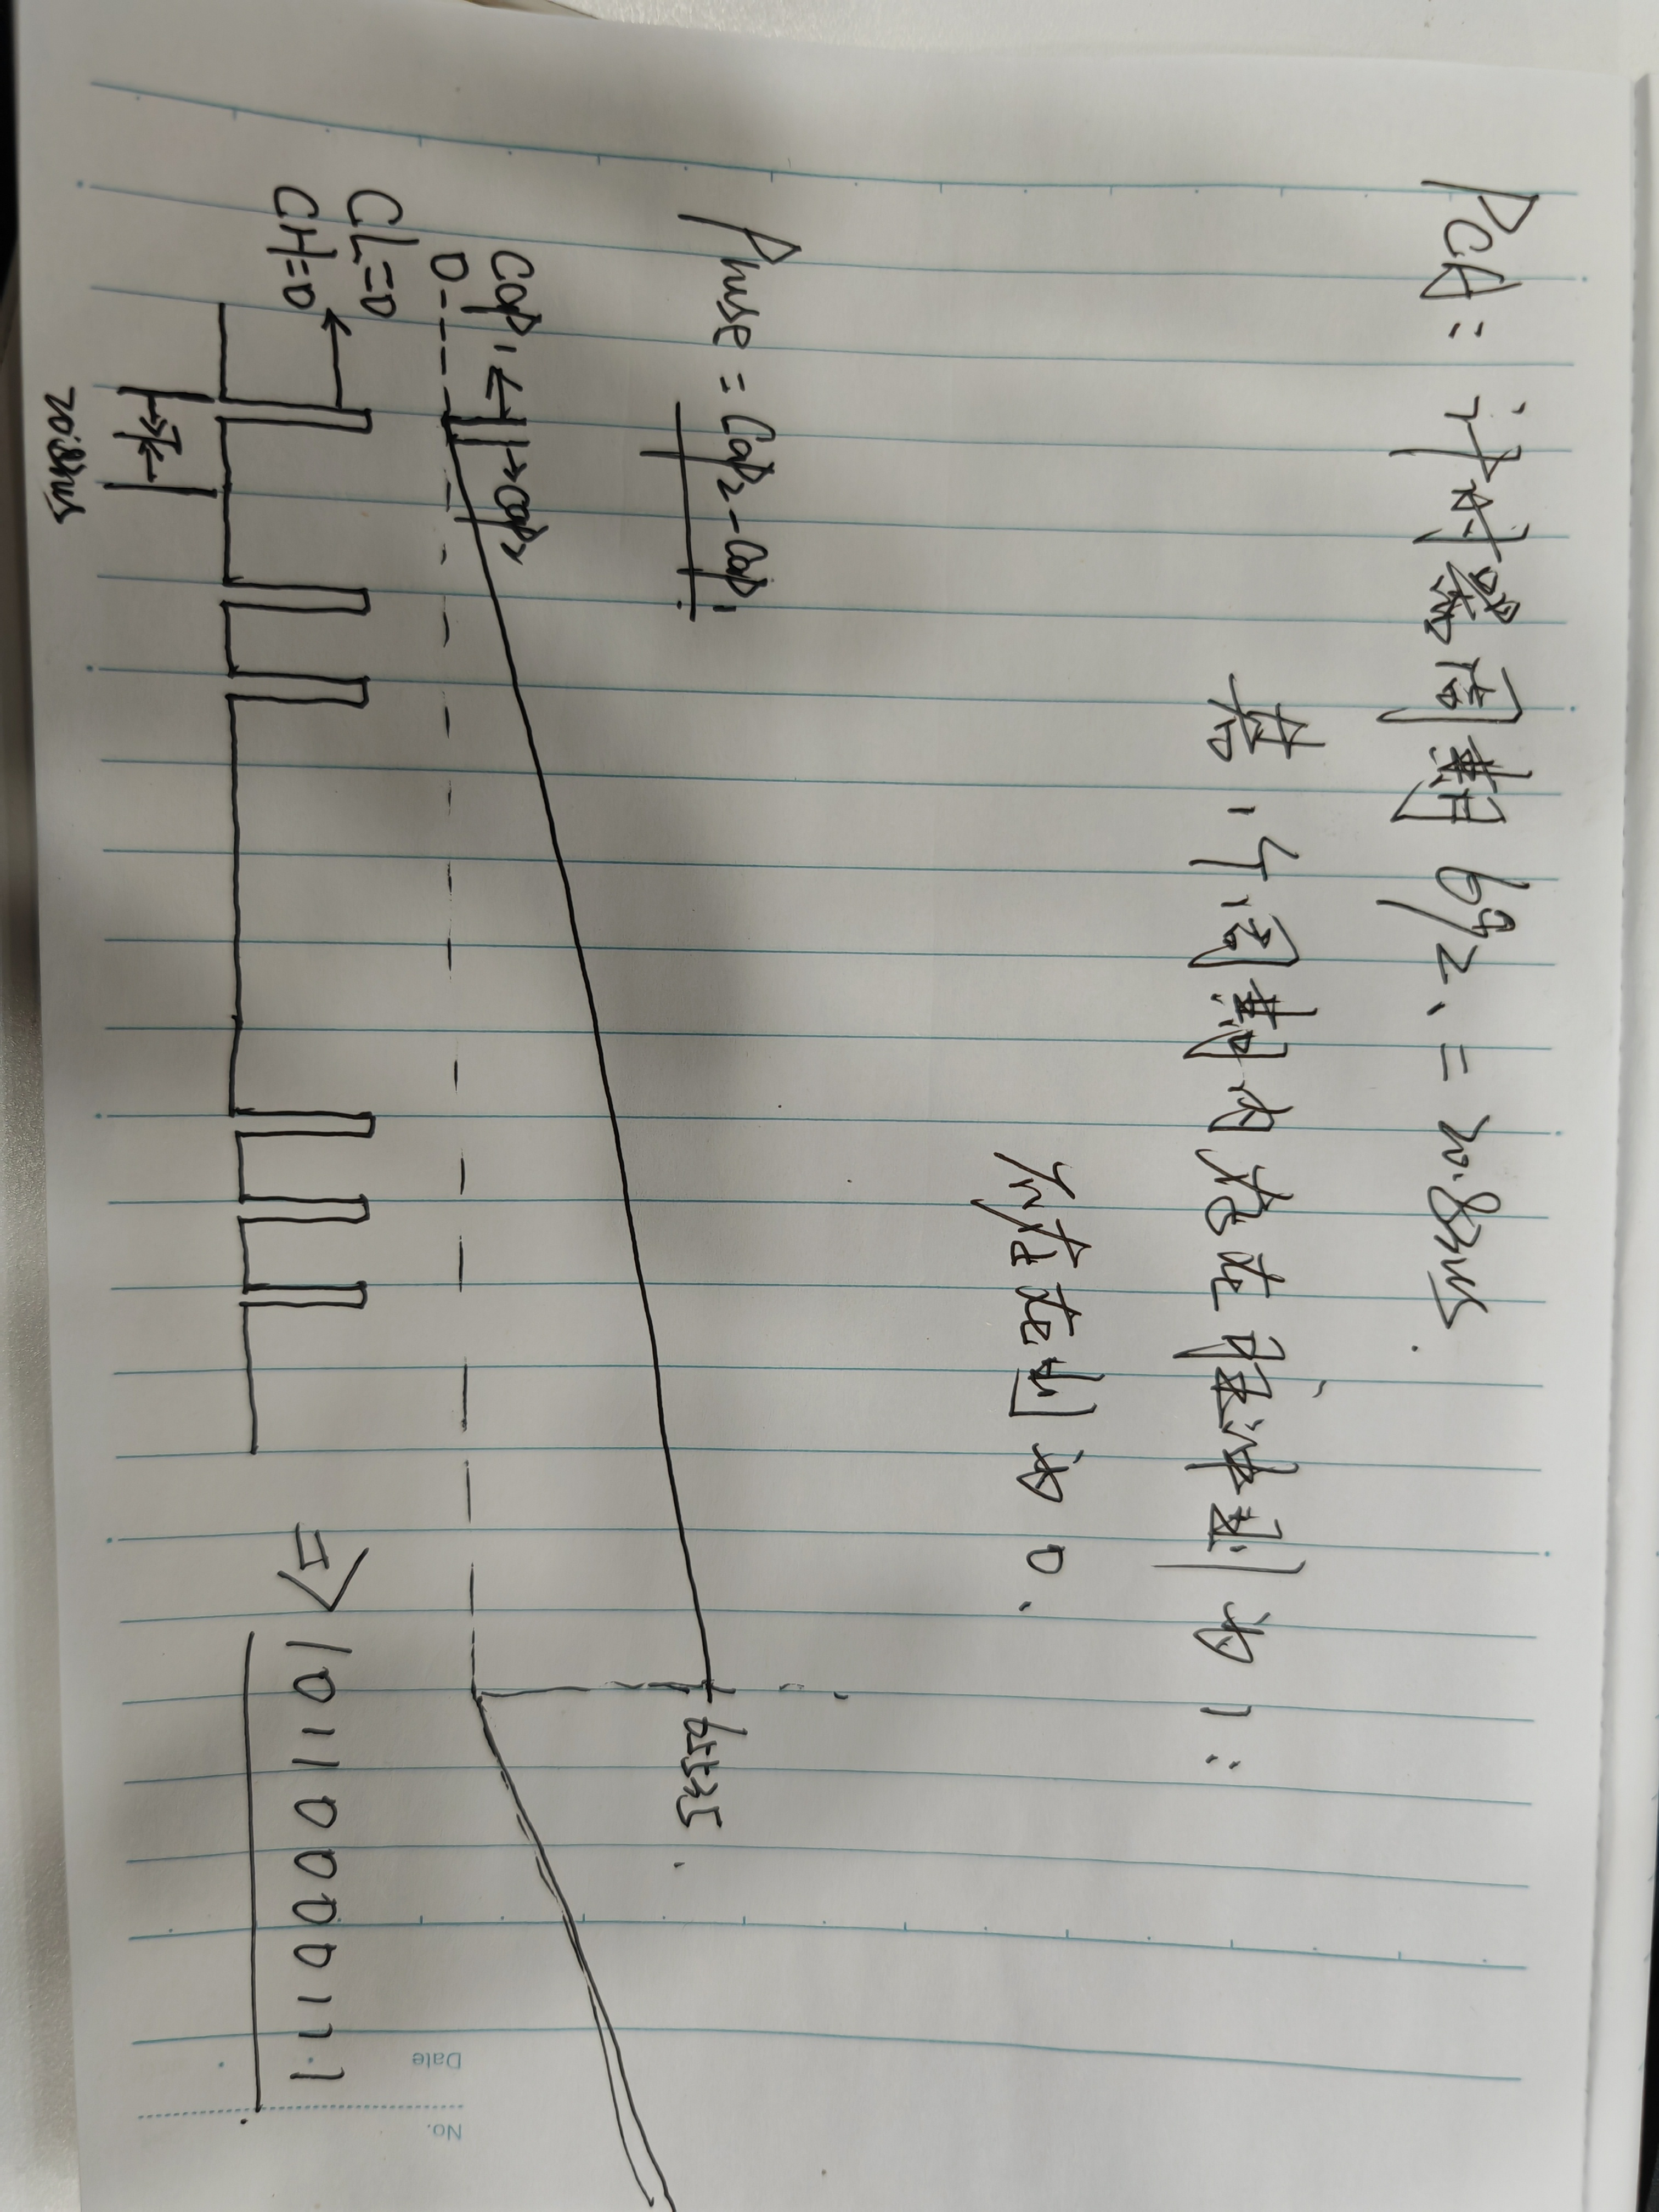 PCA: 计时器周期 = 20.83us.
若1个周期内存在脉冲则为1:
不存在则为0.
= Cap2-Cap1
65535.
Cap1 → ← Cap2
0
CL=0
CH=0
20.83us
⇒ 1011000111
Date
No.